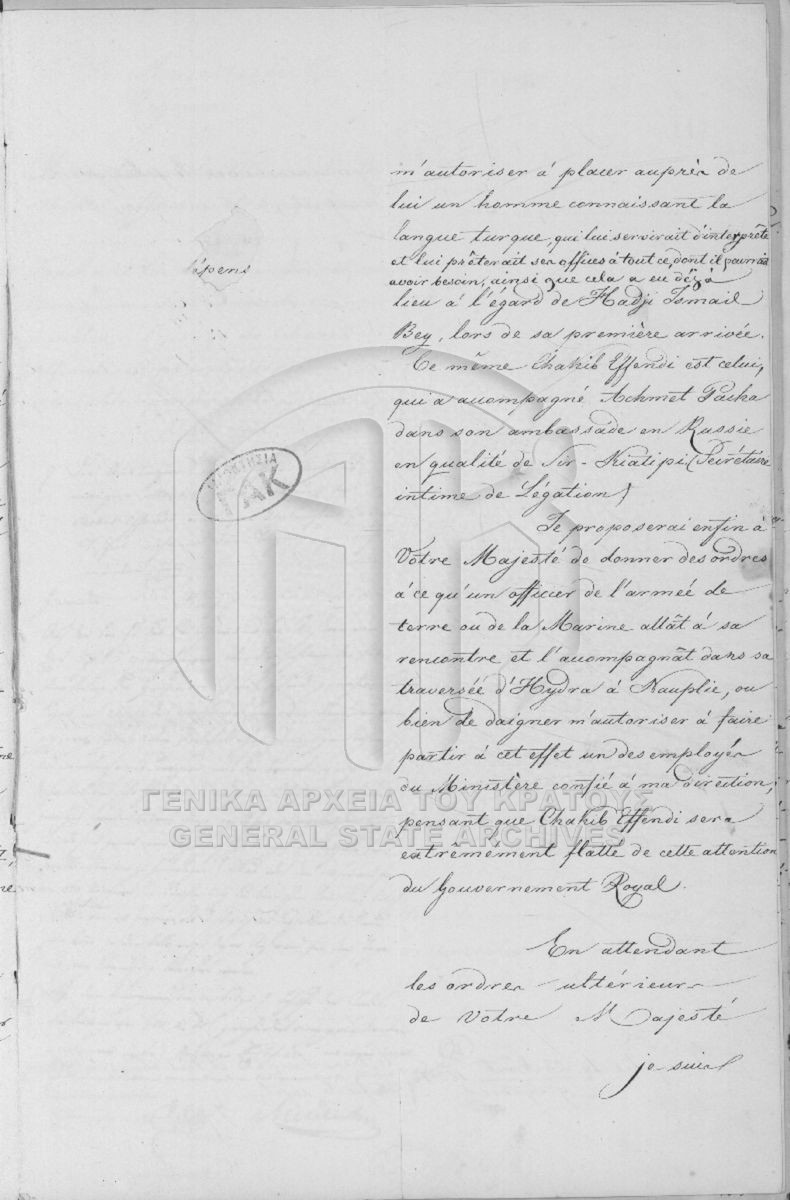 m'autoriser à placer auprès de
lui un homme connaissant la
langue turque, qui lui servirait d'interprête
et lui prêterait ses offices à tout ce, dont il pourrait
avoir besoin, ainsi que cela a eu déjà
lieu à l'égard de Hadji Ismail
Bey, lors de sa première arrivée.
Ce même Chakib Effendi est celui,
qui a accompagné Achmet Pacha
dans son ambassade en Russie
en qualité de Sir-Kiatipi (Secrétaire
intime de Légation)
Je proposerai enfin à
Votre Majesté de donner des ordres
à ce qu'un officier de l'armée de
terre ou de la Marine allât à sa
rencontre et l'accompagnât dans sa
traversée d'Hydra à Nauplie, ou
bien de daigner m'autoriser à faire
partir à cet effet un des employés
du Ministère confié à ma direction,
pensant que Chakib Effendi sera
extrêmement flatté de cette attention
du Gouvernement Royal.
En attendant
les ordres ultérieurs
de Votre Majesté
je suis
épens
ΑΚ
ΓΕΝΙΚΑ ΑΡΧΕΙΑ ΤΟΥ ΚΡΑΤΟΥΣ
GENERAL STATE ARCHIVES